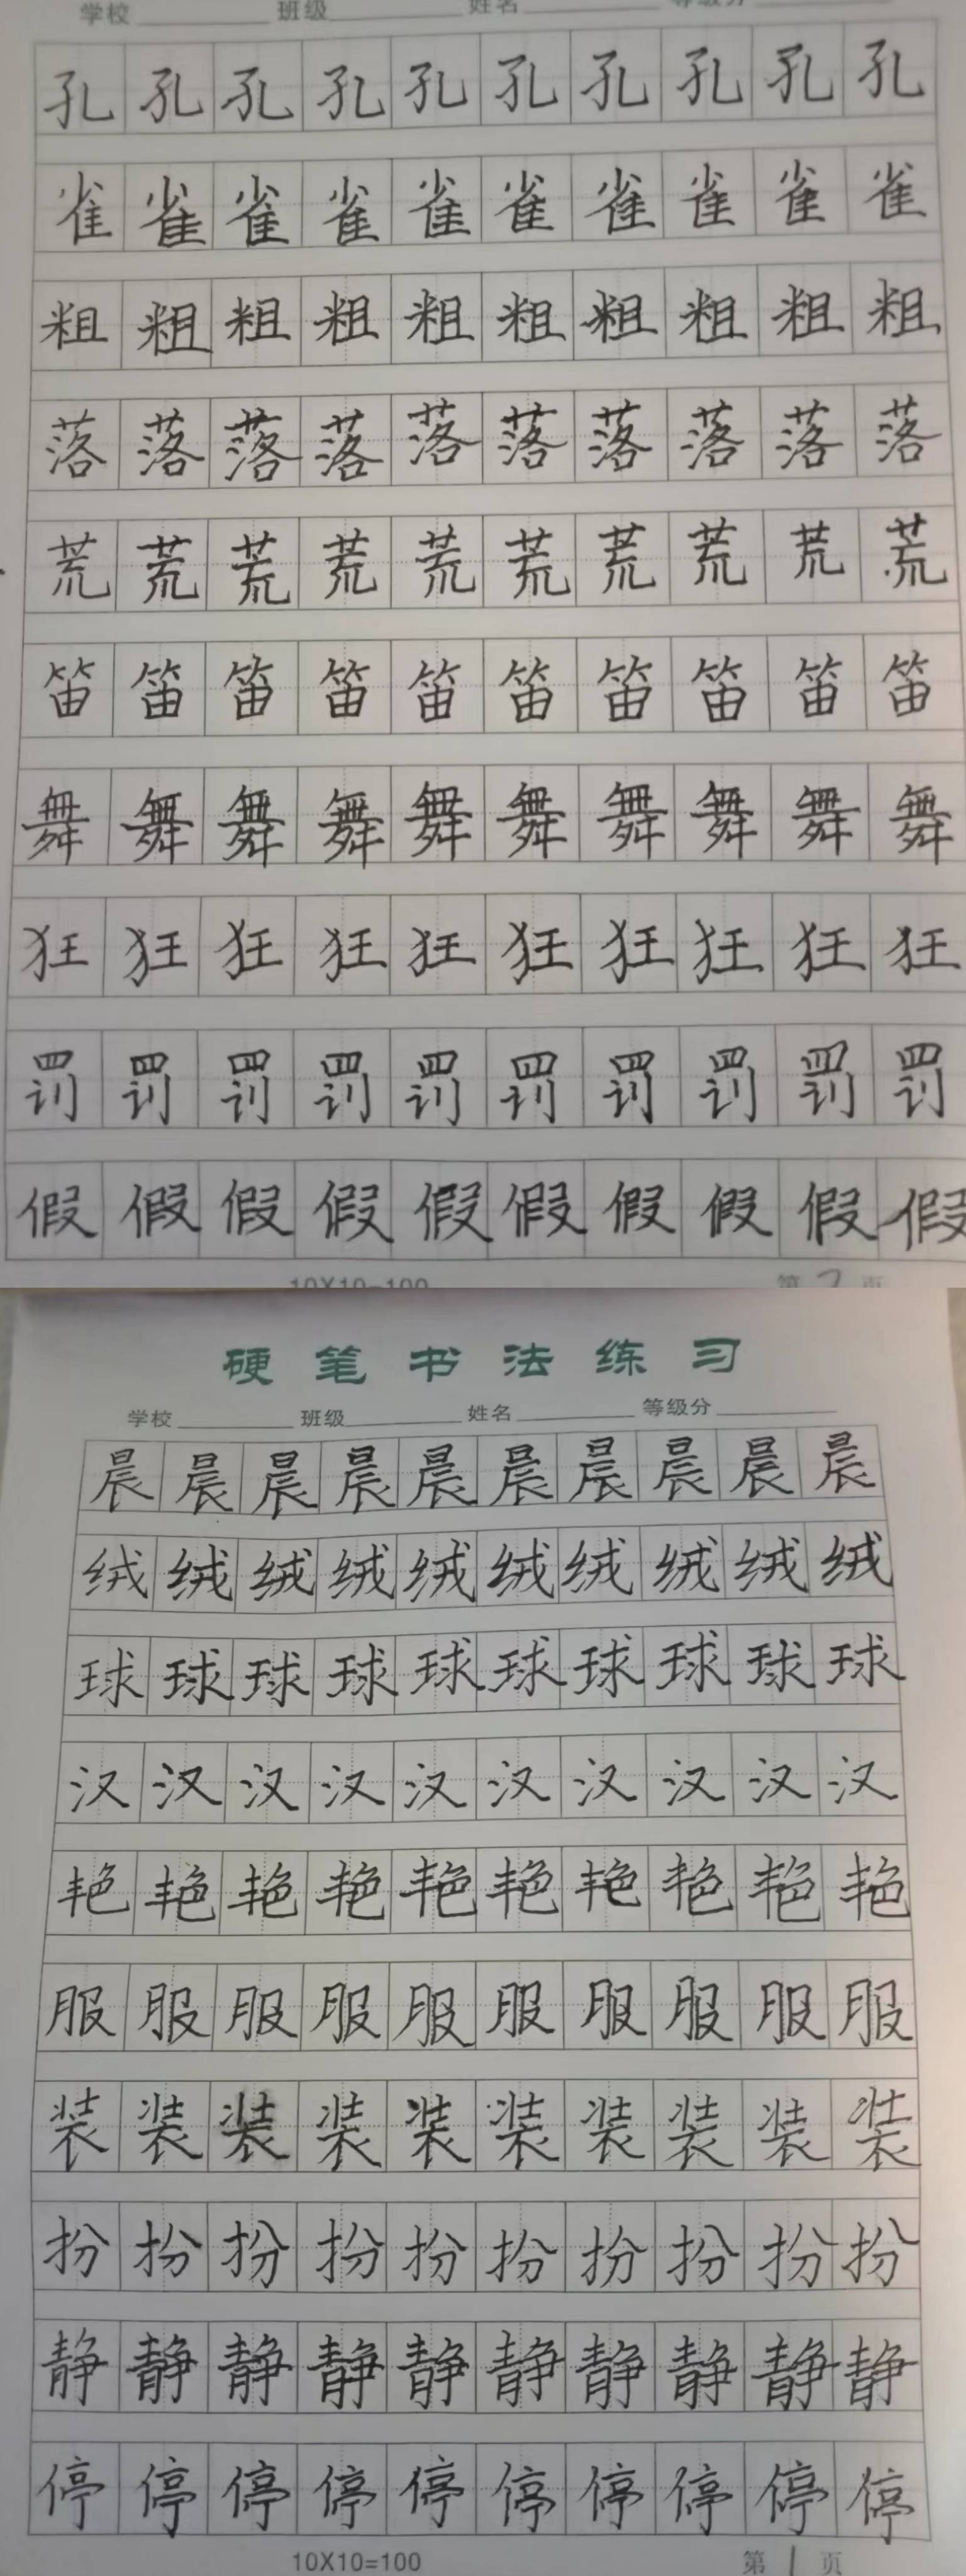 学校 班级 姓名 等级分
孔孔孔孔孔孔孔孔孔孔
雀雀雀雀雀雀雀雀雀雀
粗粗粗粗粗粗粗粗粗粗
落落落落落落落落落落
荒荒荒荒荒荒荒荒荒荒
笛笛笛笛笛笛笛笛笛笛
舞舞舞舞舞舞舞舞舞舞
狂狂狂狂狂狂狂狂狂狂
罚罚罚罚罚罚罚罚罚罚
假假假假假假假假假假
10X10=100 第2页
硬笔书法练习
学校 班级 姓名 等级分
晨晨晨晨晨晨晨晨晨晨
绒绒绒绒绒绒绒绒绒绒
球球球球球球球球球球
汉汉汉汉汉汉汉汉汉汉
艳艳艳艳艳艳艳艳艳艳
服服服服服服服服服服
装装装装装装装装装装
扮扮扮扮扮扮扮扮扮扮
静静静静静静静静静静
停停停停停停停停停停
10X10=100 第1页